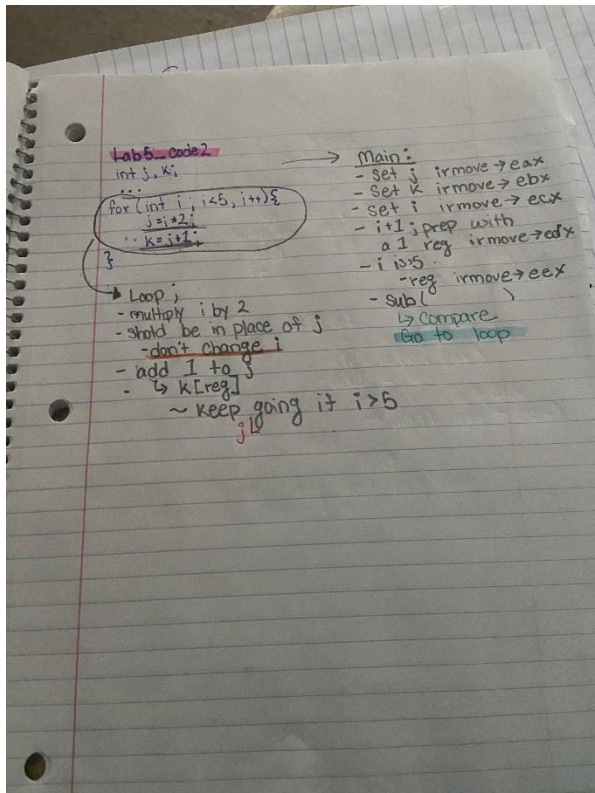 Lab5_code2
int j, k;
...
for (int i, i<5, i++){
j=i*2;
k=j+1;
}
Loop;
- multiply i by 2
- shold be in place of j
- don't change i
- add 1 to j
- ↳ k[reg]
~ keep going if i>5
jL
→ Main:
- set j irmove → eax
- set k irmove → ebx
- set i irmove → ecx
- i+1; prep with
a 1 reg irmove → edx
- i is >5.
- reg irmove → eex
- sub( )
↳ compare
Go to loop